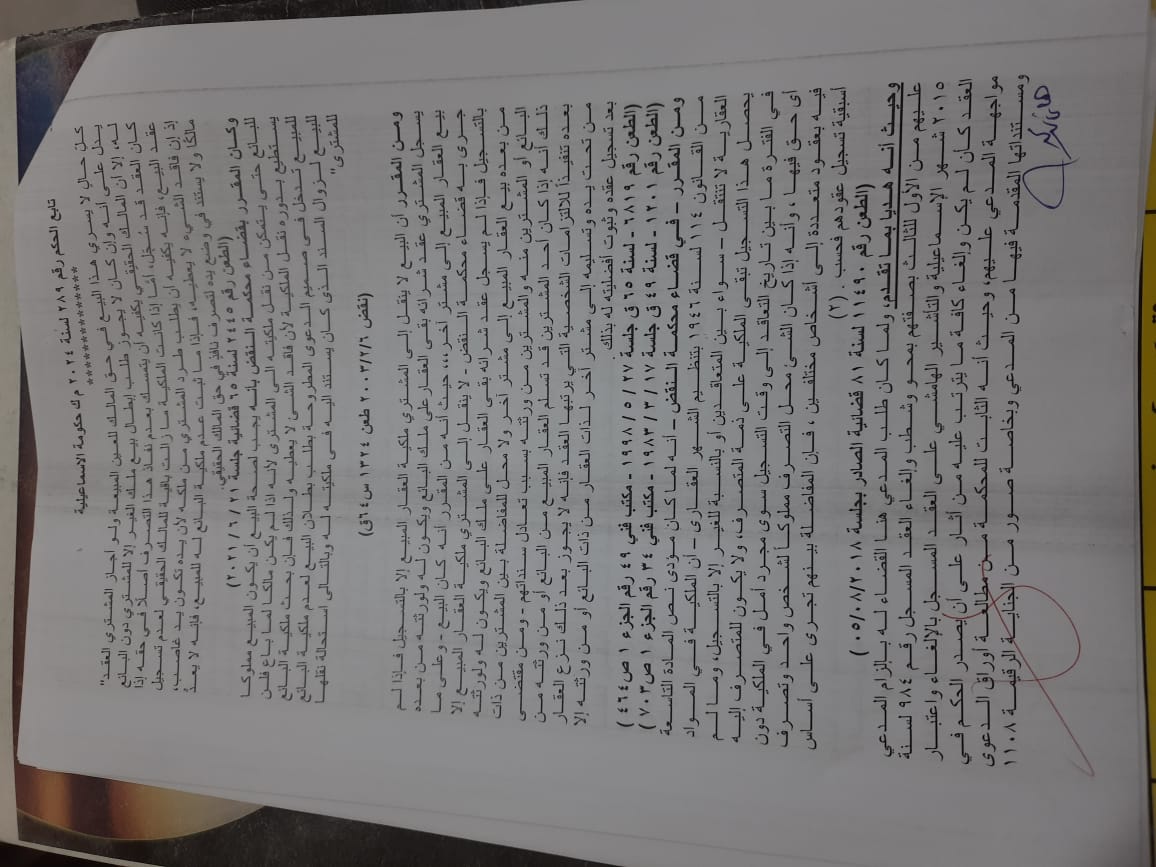 تابع الحكم رقم ٢٨٩ لسنة ٢٠٢٤ م ك حكومة الاسماعيلية
**********************
كل حال لا يسري هذا البيع في حق المالك للعين المبيعة ولو أجاز المشتري العقد"
يدل على أنه وإن كان لا يجوز طلب إبطال بيع ملك الغير إلا للمشتري دون البائع
له، إلا أن المالك الحقيقي يكفيه أن يتمسك بعدم نفاذ هذا التصرف أصلاً في حقه إذا
كان العقد قد سُجل، أمّا إذا كانت الملكية ما زالت باقية للمالك الحقيقي لعدم تسجيل
عقد البيع، فإنه يكفيه أن يطلب طرد المشتري من ملكه لأن يده تكون يد غاصب،
إذ إن فاقد الشيء لا يعطيه، فإذا ما ثبت عدم ملكية البائع له للمبيع، فإنه لا يعدُّ
مالكًا ولا يستند في وضع يده لتصرف نافذ في حق المالك الحقيقي.
(الطعن رقم ٢٤٤٥ لسنة ٦٥ قضائية جلسة ٢١ / ٦ / ٢٠٢١)
وكان المقرر بقضاء محكمة النقض بأنه يجب لصحة البيع أن يكون المبيع مملوكا
للبائع حتى يتمكن من نقل ملكيته إلى المشتري لأنه إذا لم يكن مالكا لما باع فلن
يستطع بدوره نقل الملكية لأن فاقد الشئ لا يعطيه ولذلك فإن بحث ملكية البائع
للمبيع تدخل في صميم الدعوى المطروحة بطلب بطلان البيع لعدم ملكية البائع
للبيع لزوال السند الذي كان يستند اليه في ملكيته له وبالتالي استحالة نقلها
للمشتري"
(نقض ٢٠٠٣/٢/٦ طعن ١٣٢٤ س ٦٤ق)
ومن المقرر أن البيع لا ينقل إلى المشتري ملكية العقار المبيع إلا بالتسجيل فإذا لم
يسجل المشتري عقد شرائه بقى العقار على ملك البائع ويكون له لورثته من بعده
بيع العقار المبيع إلى مشتر آخر ،،،، حيث أنه من المقرر أنه كان البيع - وعلى ما
جرى به قضاء محكمة النقض - لا ينقل إلى المشتري ملكية العقار المبيع إلا
بالتسجيل فإذا لم يسجل عقد شرائه بقى العقار على ملك البائع ويكون له ولورثته
من بعده بيع العقار المبيع إلى مشتر آخر ولا محل للمفاضلة بين المشترين من ذات
البائع أو المشترين منه والمشترين من ورثته بسبب تعادل سنداتهم. ومن مقتضى
ذلك أنه إذا كان أحد المشترين قد تسلم العقار المبيع من البائع أو من ورثته من
بعده تنفيذاً للالتزامات الشخصية التي يرتبها العقد فإنه لا يجوز بعد ذلك نزع العقار
من تحت يده وتسليمه إلى مشتر آخر لذات العقار من ذات البائع أو من ورثته إلا
بعد تسجيل عقده وثبوت أفضليته له بذلك.
(الطعن رقم ٢٨١٩ - لسنة ٦٥ ق جلسة ٢٧ / ٥ / ١٩٩٨ - مكتب فني ٤٩ رقم الجزء ١ ص ٤٦٤)
(الطعن رقم ١٢٠١ - لسنة ٤٩ ق جلسة ١٧ / ٣ / ١٩٨٣ - مكتب فني ٣٤ رقم الجزء ١ ص ٧٠٣)
ومن المقرر - في قضاء محكمة النقض - أنه لما كان مؤدى نص المادة التاسعة
من القانون ١١٤ لسنة ١٩٤٦ بتنظيم الشهر العقاري - أن الملكية في المواد
العقارية لا تنتقل - سواء بين المتعاقدين أو بالنسبة للغير إلا بالتسجيل، وما لم
يحصل هذا التسجيل تبقى الملكية على ذمة المتصرف، ولا يكون للمتصرف إليه
في الفترة ما بين تاريخ التعاقد إلى وقت التسجيل سوى مجرد أمل في الملكية دون
أى حق فيها ، وأنه إذا كان الشئ محل التصرف مملوكاً لشخص واحد وتصرف
فيه بعقود متعددة إلى أشخاص مختلفين ، فإن المفاضلة بينهم تجرى على أساس
أسبقية تسجيل عقودهم فحسب . (٢)
(الطعن رقم ١١٤٩٠ لسنة ٨١ قضائية الصادر بجلسة ٠٥/٠٨/٢٠١٨)
وحيث أنه هديا بما تقدم، ولما كان طلب المدعي هنا القضاء له بإلزام المدعي
عليهم من الأول للثالث بصفتهم بمحو وشطب وإلغاء العقد المسجل رقم ٩٨٤ لسنة
٢٠١٥ شهر الإسماعيلية والتأشير الهامشي على العقد المسجل بالإلغاء واعتبار
العقد كان لم يكن وإلغاء كافة ما يترتب عليه من آثار على أن يصدر الحكم في
مواجهة المدعي عليهم، وحيث أنه الثابت للمحكمة من مطالعة أوراق الدعوى
ومستنداتها المقدمة فيها من المدعي وبخاصة صور من الجناية الرقيمة ١١٠٨